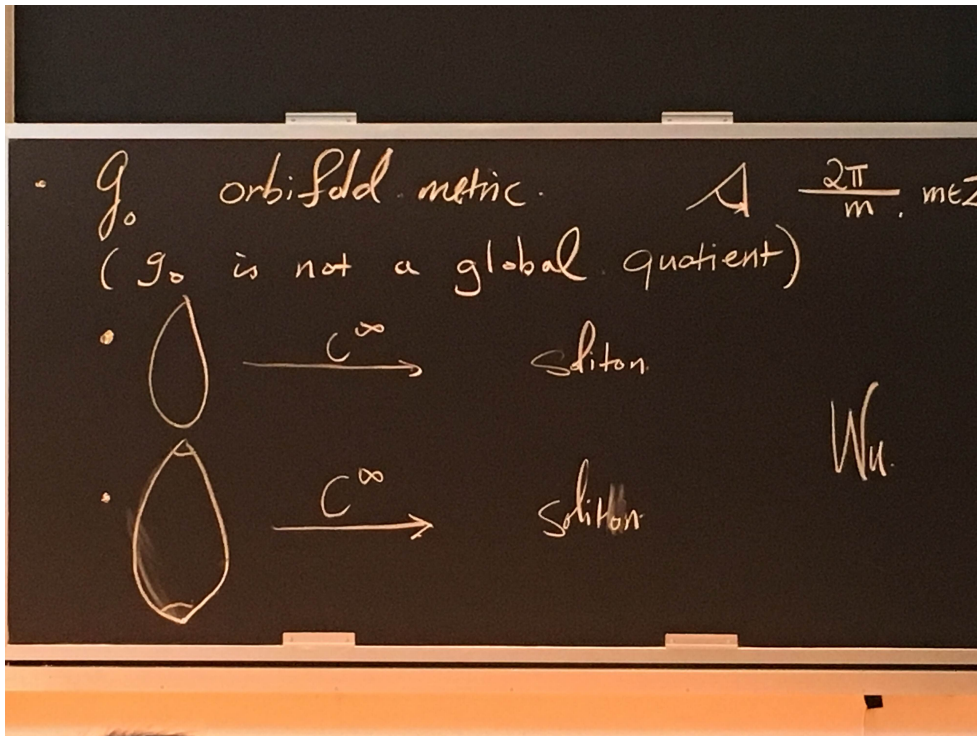 · g₀ orbifold metric. 2π/m, m∈Z
(g₀ is not a global quotient)
· C^∞ soliton
Wu.
· C^∞ soliton